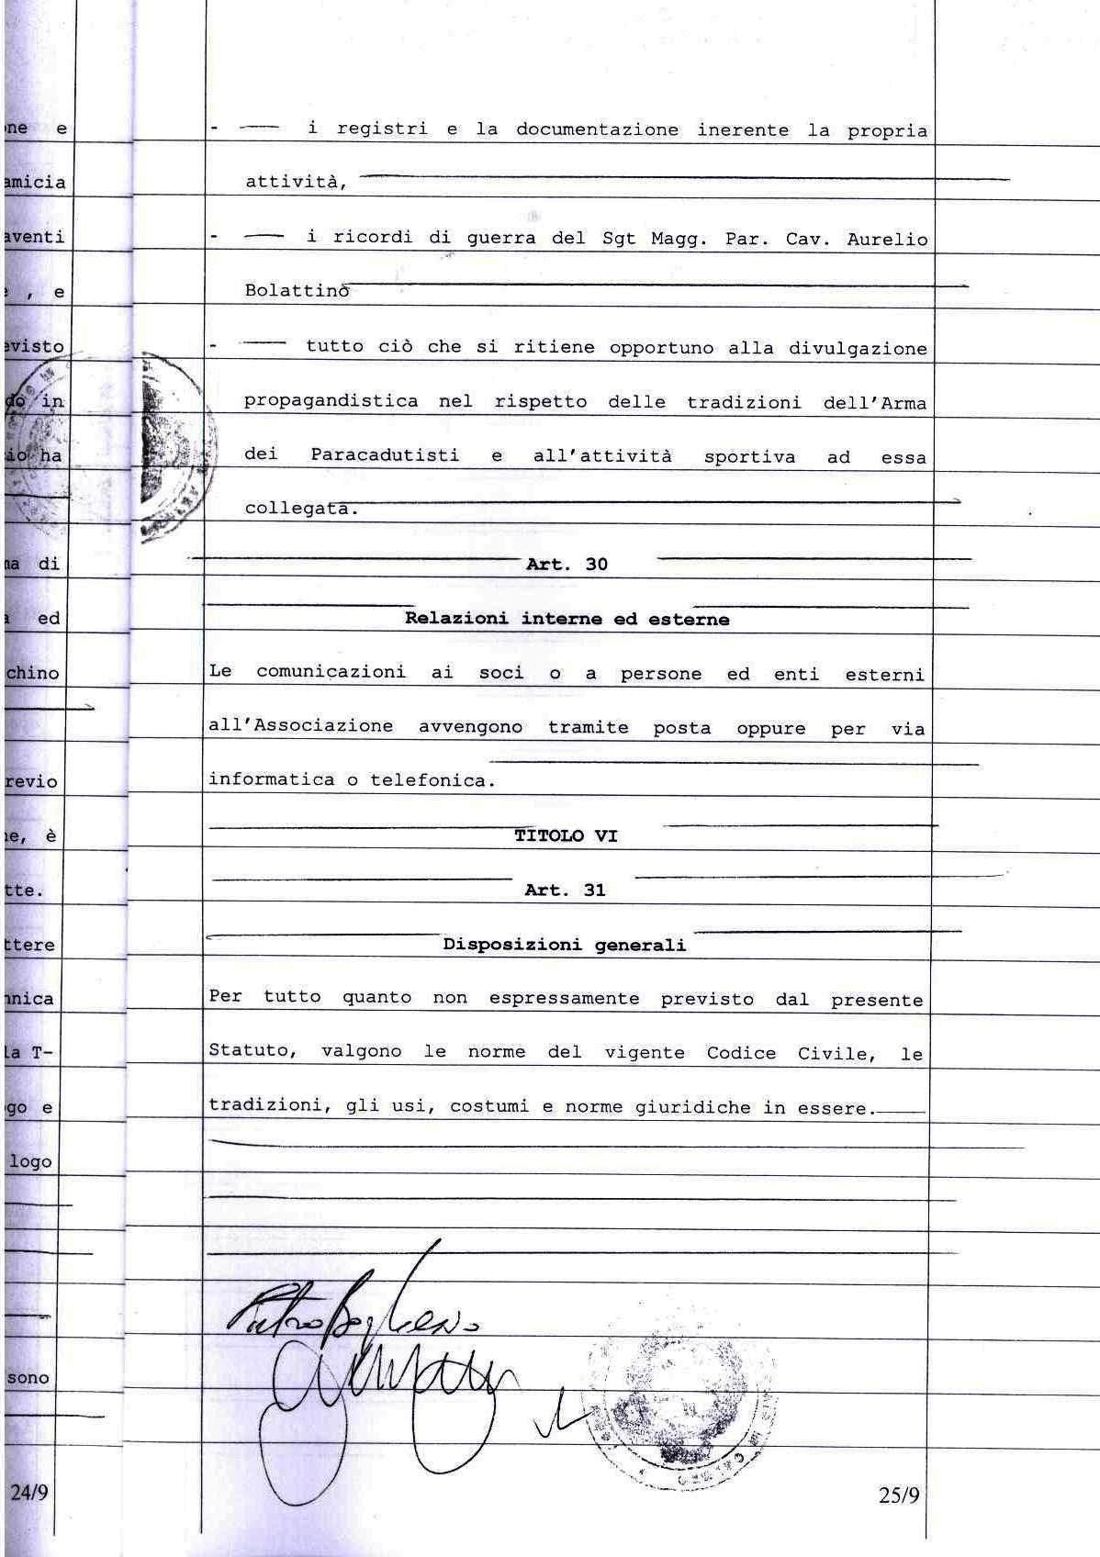 ne e
amicia
aventi
, e
evisto
do in
io ha
na di
ed
chino
revio
ne, è
tte.
ttere
nnica
la T-
go e
logo
sono
24/9
- i registri e la documentazione inerente la propria
attività,
- i ricordi di guerra del Sgt Magg. Par. Cav. Aurelio
Bolattino
- tutto ciò che si ritiene opportuno alla divulgazione
propagandistica nel rispetto delle tradizioni dell'Arma
dei Paracadutisti e all'attività sportiva ad essa
collegata.
Art. 30
Relazioni interne ed esterne
Le comunicazioni ai soci o a persone ed enti esterni
all'Associazione avvengono tramite posta oppure per via
informatica o telefonica.
TITOLO VI
Art. 31
Disposizioni generali
Per tutto quanto non espressamente previsto dal presente
Statuto, valgono le norme del vigente Codice Civile, le
tradizioni, gli usi, costumi e norme giuridiche in essere.
Pietro
25/9